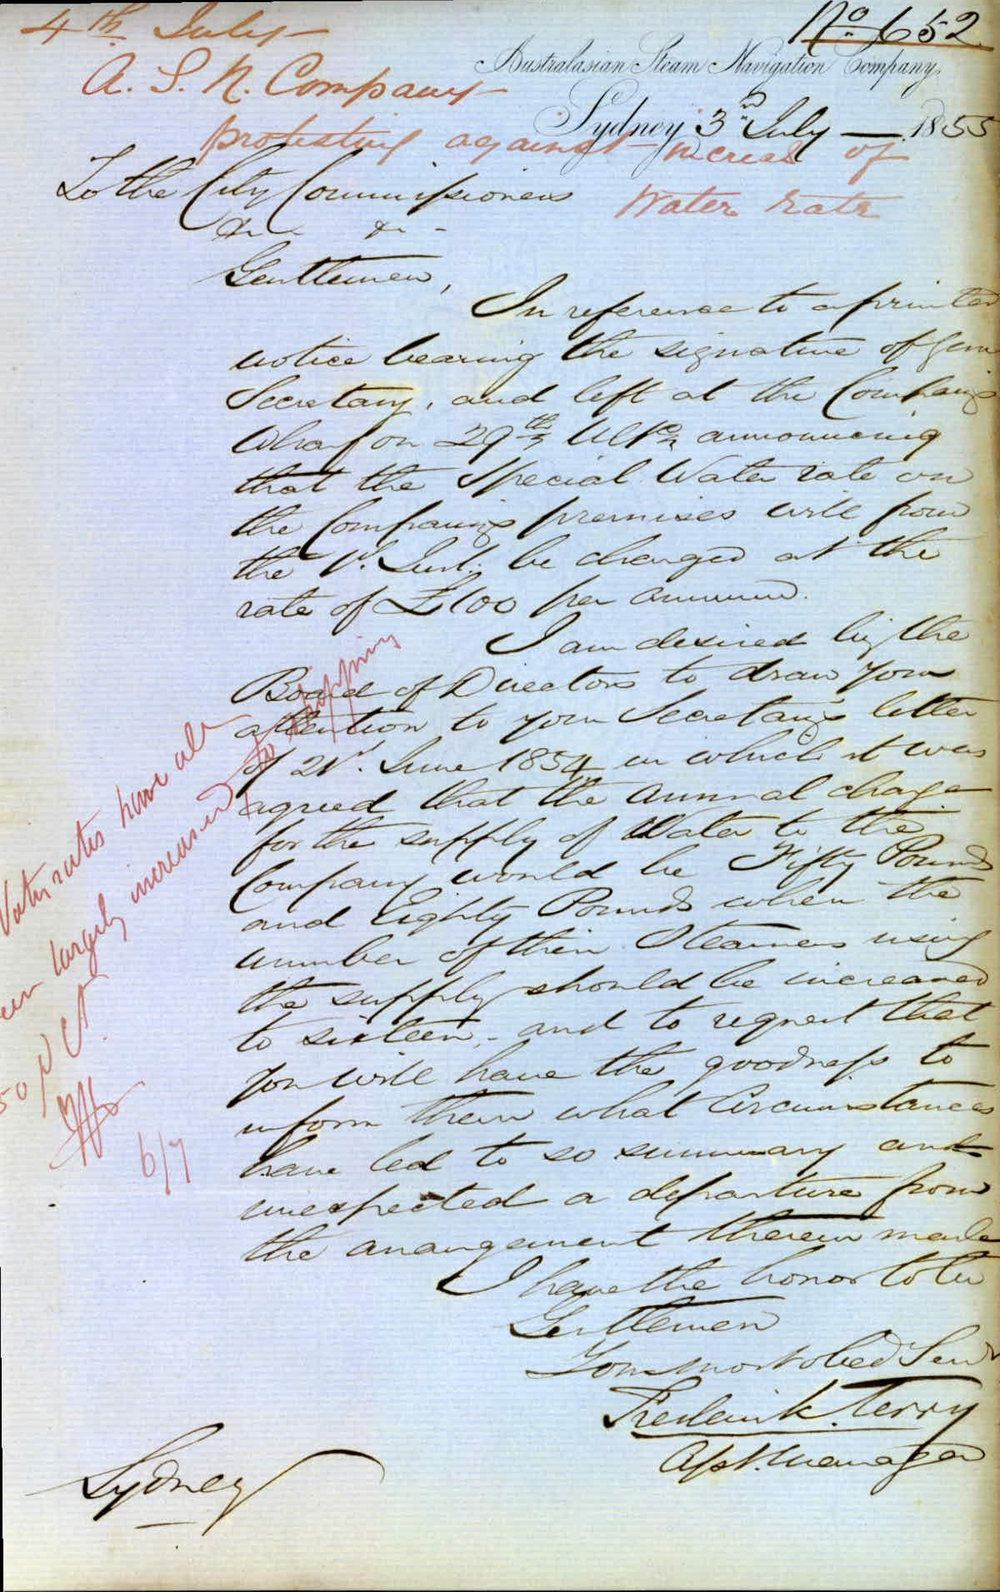 4th July
No 652
A. S. N. Company
Australasian Steam Navigation Company,
Sydney 3rd July 1855
protesting against increase of
Water Rate
To the City Commissioners
&c &c
Gentlemen,
In reference to a printed
notice bearing the signature of your
Secretary, and left at the Company's
Wharf on 29th Ulto, announcing
that the Special Water rate on
the Company's premises will from
the 1st Inst. be charged at the
rate of £100 per annum.
I am desired by the
Board of Directors to draw your
attention to your Secretary's letter
of 21st June 1854 in which it was
agreed that the annual charge
for the supply of Water to the
Company would be Fifty Pounds
and Eighty Pounds when the
number of their Steamers using
the supply should be increased
to sixteen, and to request that
you will have the goodness to
inform them what Circumstances
have led to so summary and
unexpected a departure from
the arrangement therein made
I have the honor to be
Gentlemen
Your most obed Servt
Frederick Terry
Asst. Manager
Sydney
Water rates have all
been largely increased to shipping
50 p Ct.
6/7